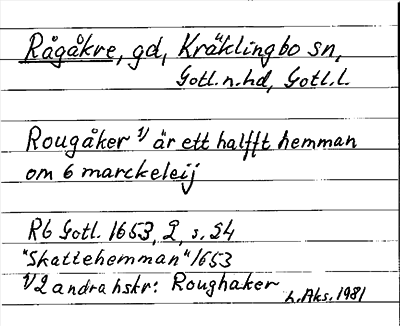 Rågåkre, gd, Kräklingbo sn,
Gotl. n. hd, Gotl. l.
Rougåker 1/ är ett halfft hemman
om 6 marckeleij
Rb Gotl. 1653, 2, s. 24
"Skattehemman" 1653
1/ 2 andra hskr: Roughaker
L. Aks. 1981